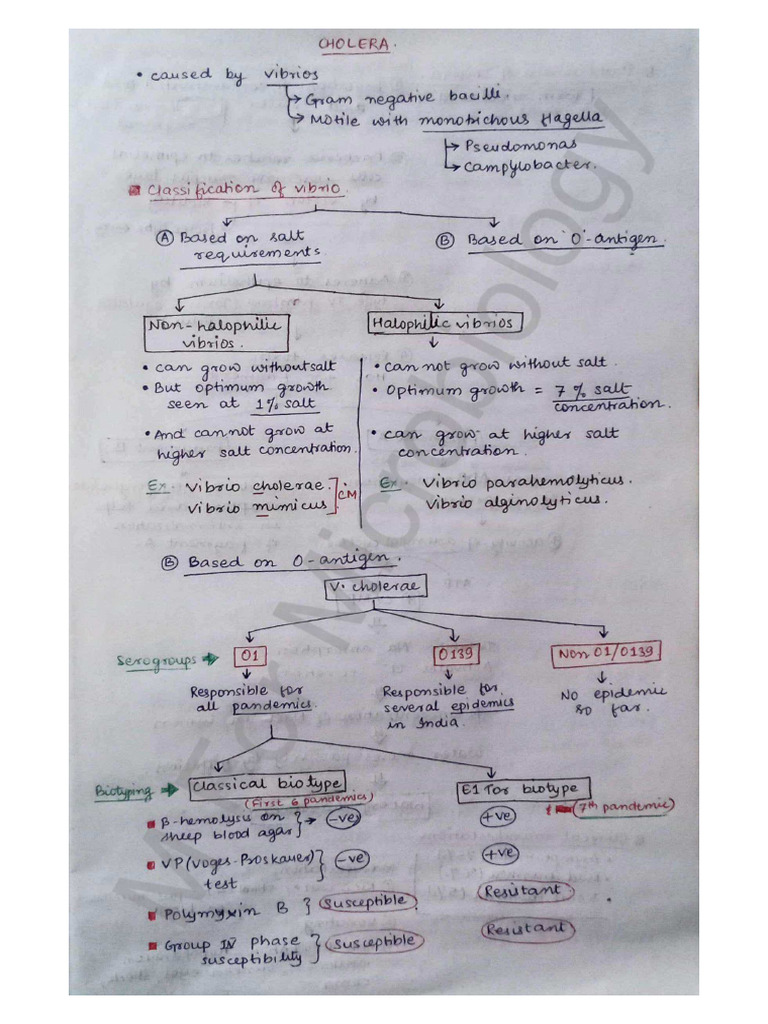 CHOLERA.
• caused by vibrios
→ Gram negative bacilli.
→ Motile with monotrichous flagella
→ Pseudomonas
→ Campylobacter.
Classification of vibrio.
(A) Based on salt requirements
(B) Based on 'O'-antigen.
Non-halophilic vibrios.
• can grow without salt
• But optimum growth
seen at 1% salt
• And cannot grow at
higher salt concentration.
Ex. Vibrio cholerae.
vibrio mimicus
CM
Halophilic vibrios
• can not grow without salt.
• Optimum growth = 7% salt
concentration.
• can grow at higher salt
concentration.
Ex. Vibrio parahemolyticus.
Vibrio alginolyticus.
(B) Based on O-antigen.
V. cholerae
Serogroups → O1 O139 Non O1/O139
Responsible for
all pandemics.
Responsible for
several epidemics
in India.
No epidemic
so far.
Biotyping → Classical biotype El Tor biotype
(First 6 pandemics) (7th pandemic)
β-hemolysis on
sheep blood agar → -ve +ve
VP (Voges-Proskauer)
test -ve +ve
Polymyxin B Susceptible Resistant
Group IV phase
susceptibility Susceptible Resistant
Microbiology